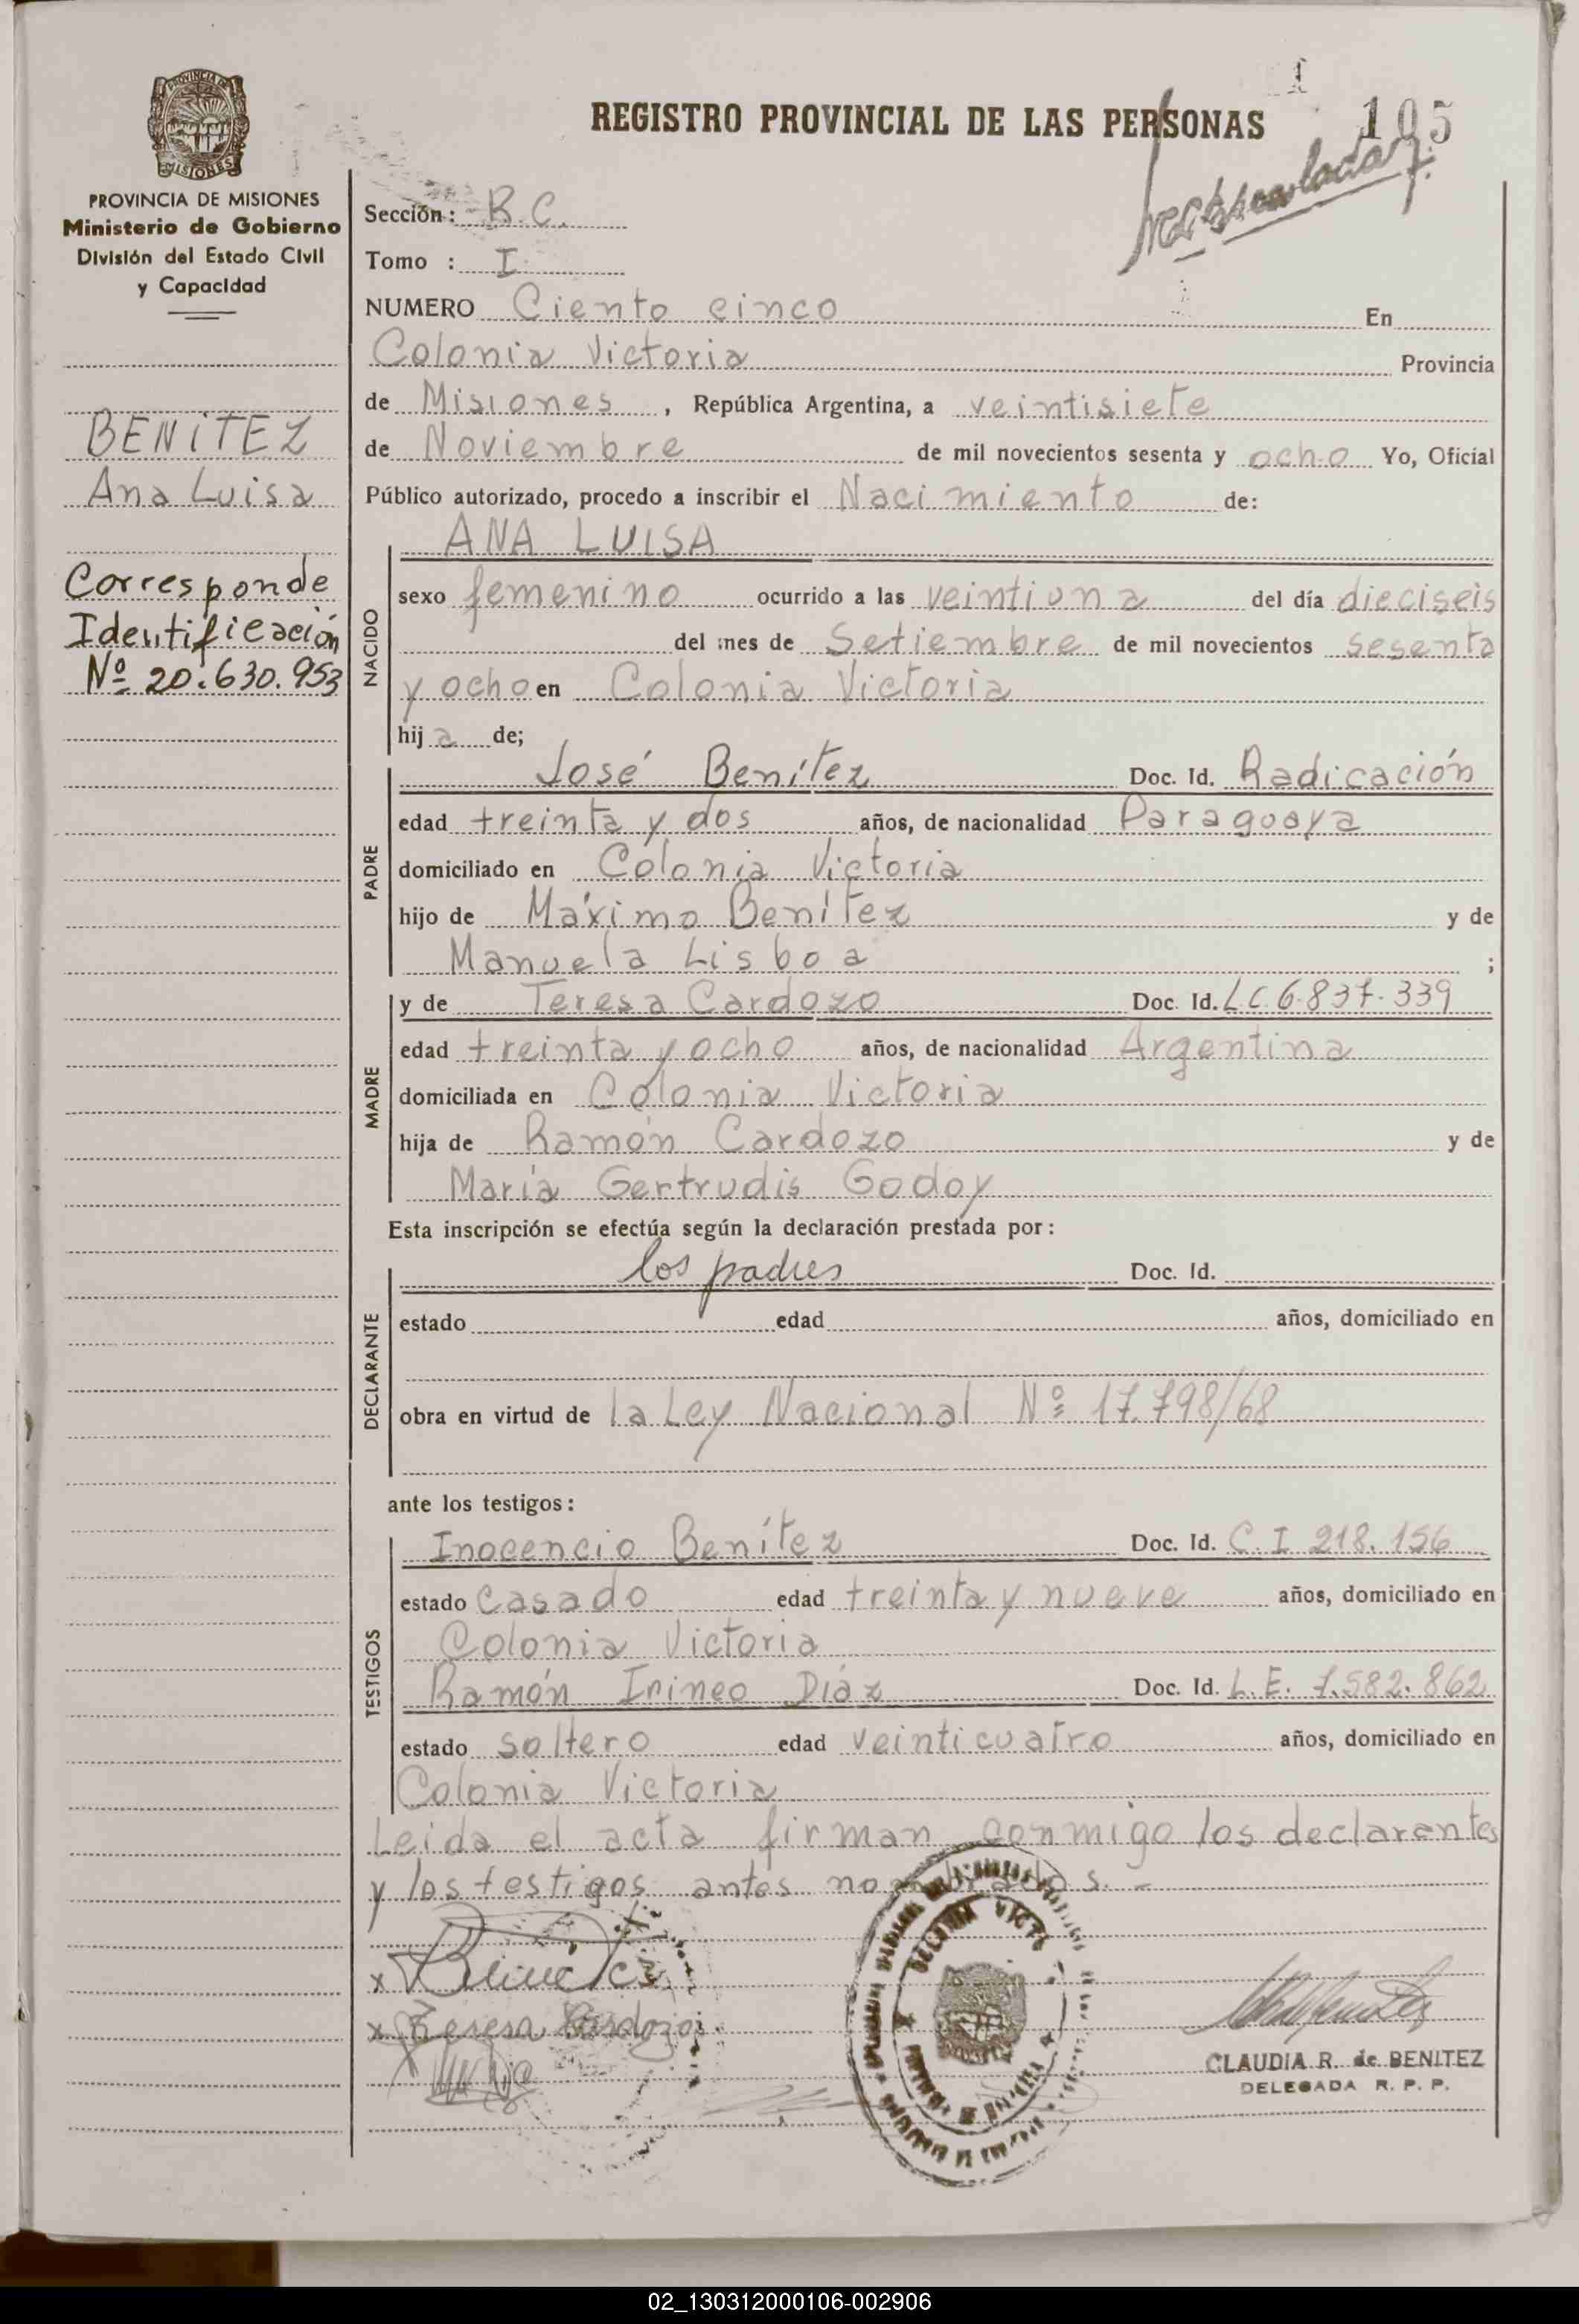 REGISTRO PROVINCIAL DE LAS PERSONAS
105
PROVINCIA DE MISIONES
Ministerio de Gobierno
División del Estado Civil
y Capacidad
BENITEZ
Ana Luisa
Corresponde
Identificación
Nº 20.630.953
Sección: B.C.
Tomo : I
NUMERO Ciento cinco En
Colonia Victoria Provincia
de Misiones, República Argentina, a veintisiete
de Noviembre de mil novecientos sesenta y ocho Yo, Oficial
Público autorizado, procedo a inscribir el Nacimiento de:
NACIDO
ANA LUISA
sexo femenino ocurrido a las veintiuna del día dieciseis
del mes de Setiembre de mil novecientos sesenta
y ocho en Colonia Victoria
hija de;
PADRE
José Benítez Doc. Id. Radicación
edad treinta y dos años, de nacionalidad Paraguaya
domiciliado en Colonia Victoria
hijo de Máximo Benítez y de
Manuela Lisboa ;
MADRE
y de Teresa Cardozo Doc. Id. LC 6.837.339
edad treinta y ocho años, de nacionalidad Argentina
domiciliada en Colonia Victoria
hija de Ramón Cardozo y de
María Gertrudis Godoy
Esta inscripción se efectúa según la declaración prestada por:
DECLARANTE
los padres Doc. Id.
estado edad años, domiciliado en
obra en virtud de la Ley Nacional Nº 17.798/68
ante los testigos:
TESTIGOS
Inocencio Benítez Doc. Id. C.I 218.156
estado casado edad treinta y nueve años, domiciliado en
Colonia Victoria
Ramón Irineo Díaz Doc. Id. L.E. 7.582.862
estado soltero edad veinticuatro años, domiciliado en
Colonia Victoria
Leida el acta firman conmigo los declarantes
y los testigos antes nombrados.-
x
x Teresa Cardozo
CLAUDIA R. de BENITEZ
DELEGADA R. P. P.
02_130312000106-002906